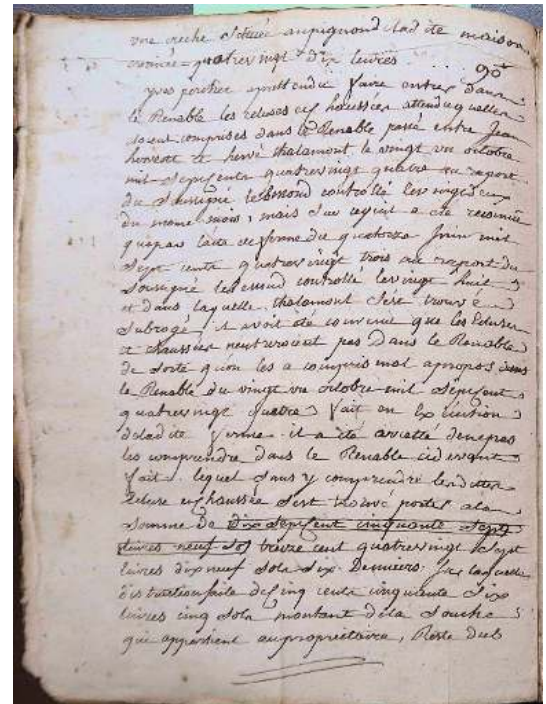 une creche située au pignon de lad.te maison
estimée quatrevingt dix livres
90#
yves prétend faire entrer dans
le Renable les ecluses et chaussées attendu quelles
soient comprises dans le Renable passé entre Jean
et hervé thalamont le vingt un octobre
mil septcents quatrevingt quatre au raport
du soussigné controllé le vingt deux
du meme mois, mais sur ce point a été reconnu
que par l'acte de ferme du quatorze Juin mil
sept cents quatrevingt trois au raport du
soussigné controllé le vingt huit
et dans laquelle thalamont s'est trouvé
subrogé, il avoit été convenu que les Ecluses
et chaussées n'entreroient pas dans le Renable
de sorte qu'on les a compris mal apropos dans
le Renable du vingt un octobre mil septcent
quatrevingt quatre fait en Execution
de lad ite ferme il a été arretté de ne pas
les comprendre dans le Renable cidevant
fait, lequel sans y comprendre lesdittes
Ecluse et chaussée s'est trouvé porter a la
somme de dix sept cent cinquante sept
livres neuf sols treize cent quatrevingt sept
livres dix neuf sols six Denniers, sur laquelle
distraction faite de cinq cents cinquante six
livres cinq sols montant de la souche
qui appartient au propriétaire, Reste du